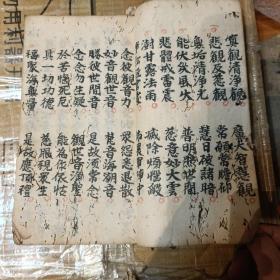 真觀清淨觀　廣大智慧觀
悲觀及慈觀　常願常瞻仰
無垢清淨光　慧日破諸暗
能伏災風火　普明照世間
悲體戒雷震　慈意妙大雲
澍甘露法雨　滅除煩惱燄
念彼觀音力　眾怨悉退散
妙音觀世音　梵音海潮音
勝彼世間音　是故須常念
念念勿生疑　觀世音淨聖
於苦惱死厄　能為作依怙
具一切功德　慈眼視眾生
福聚海無量　是故應頂禮